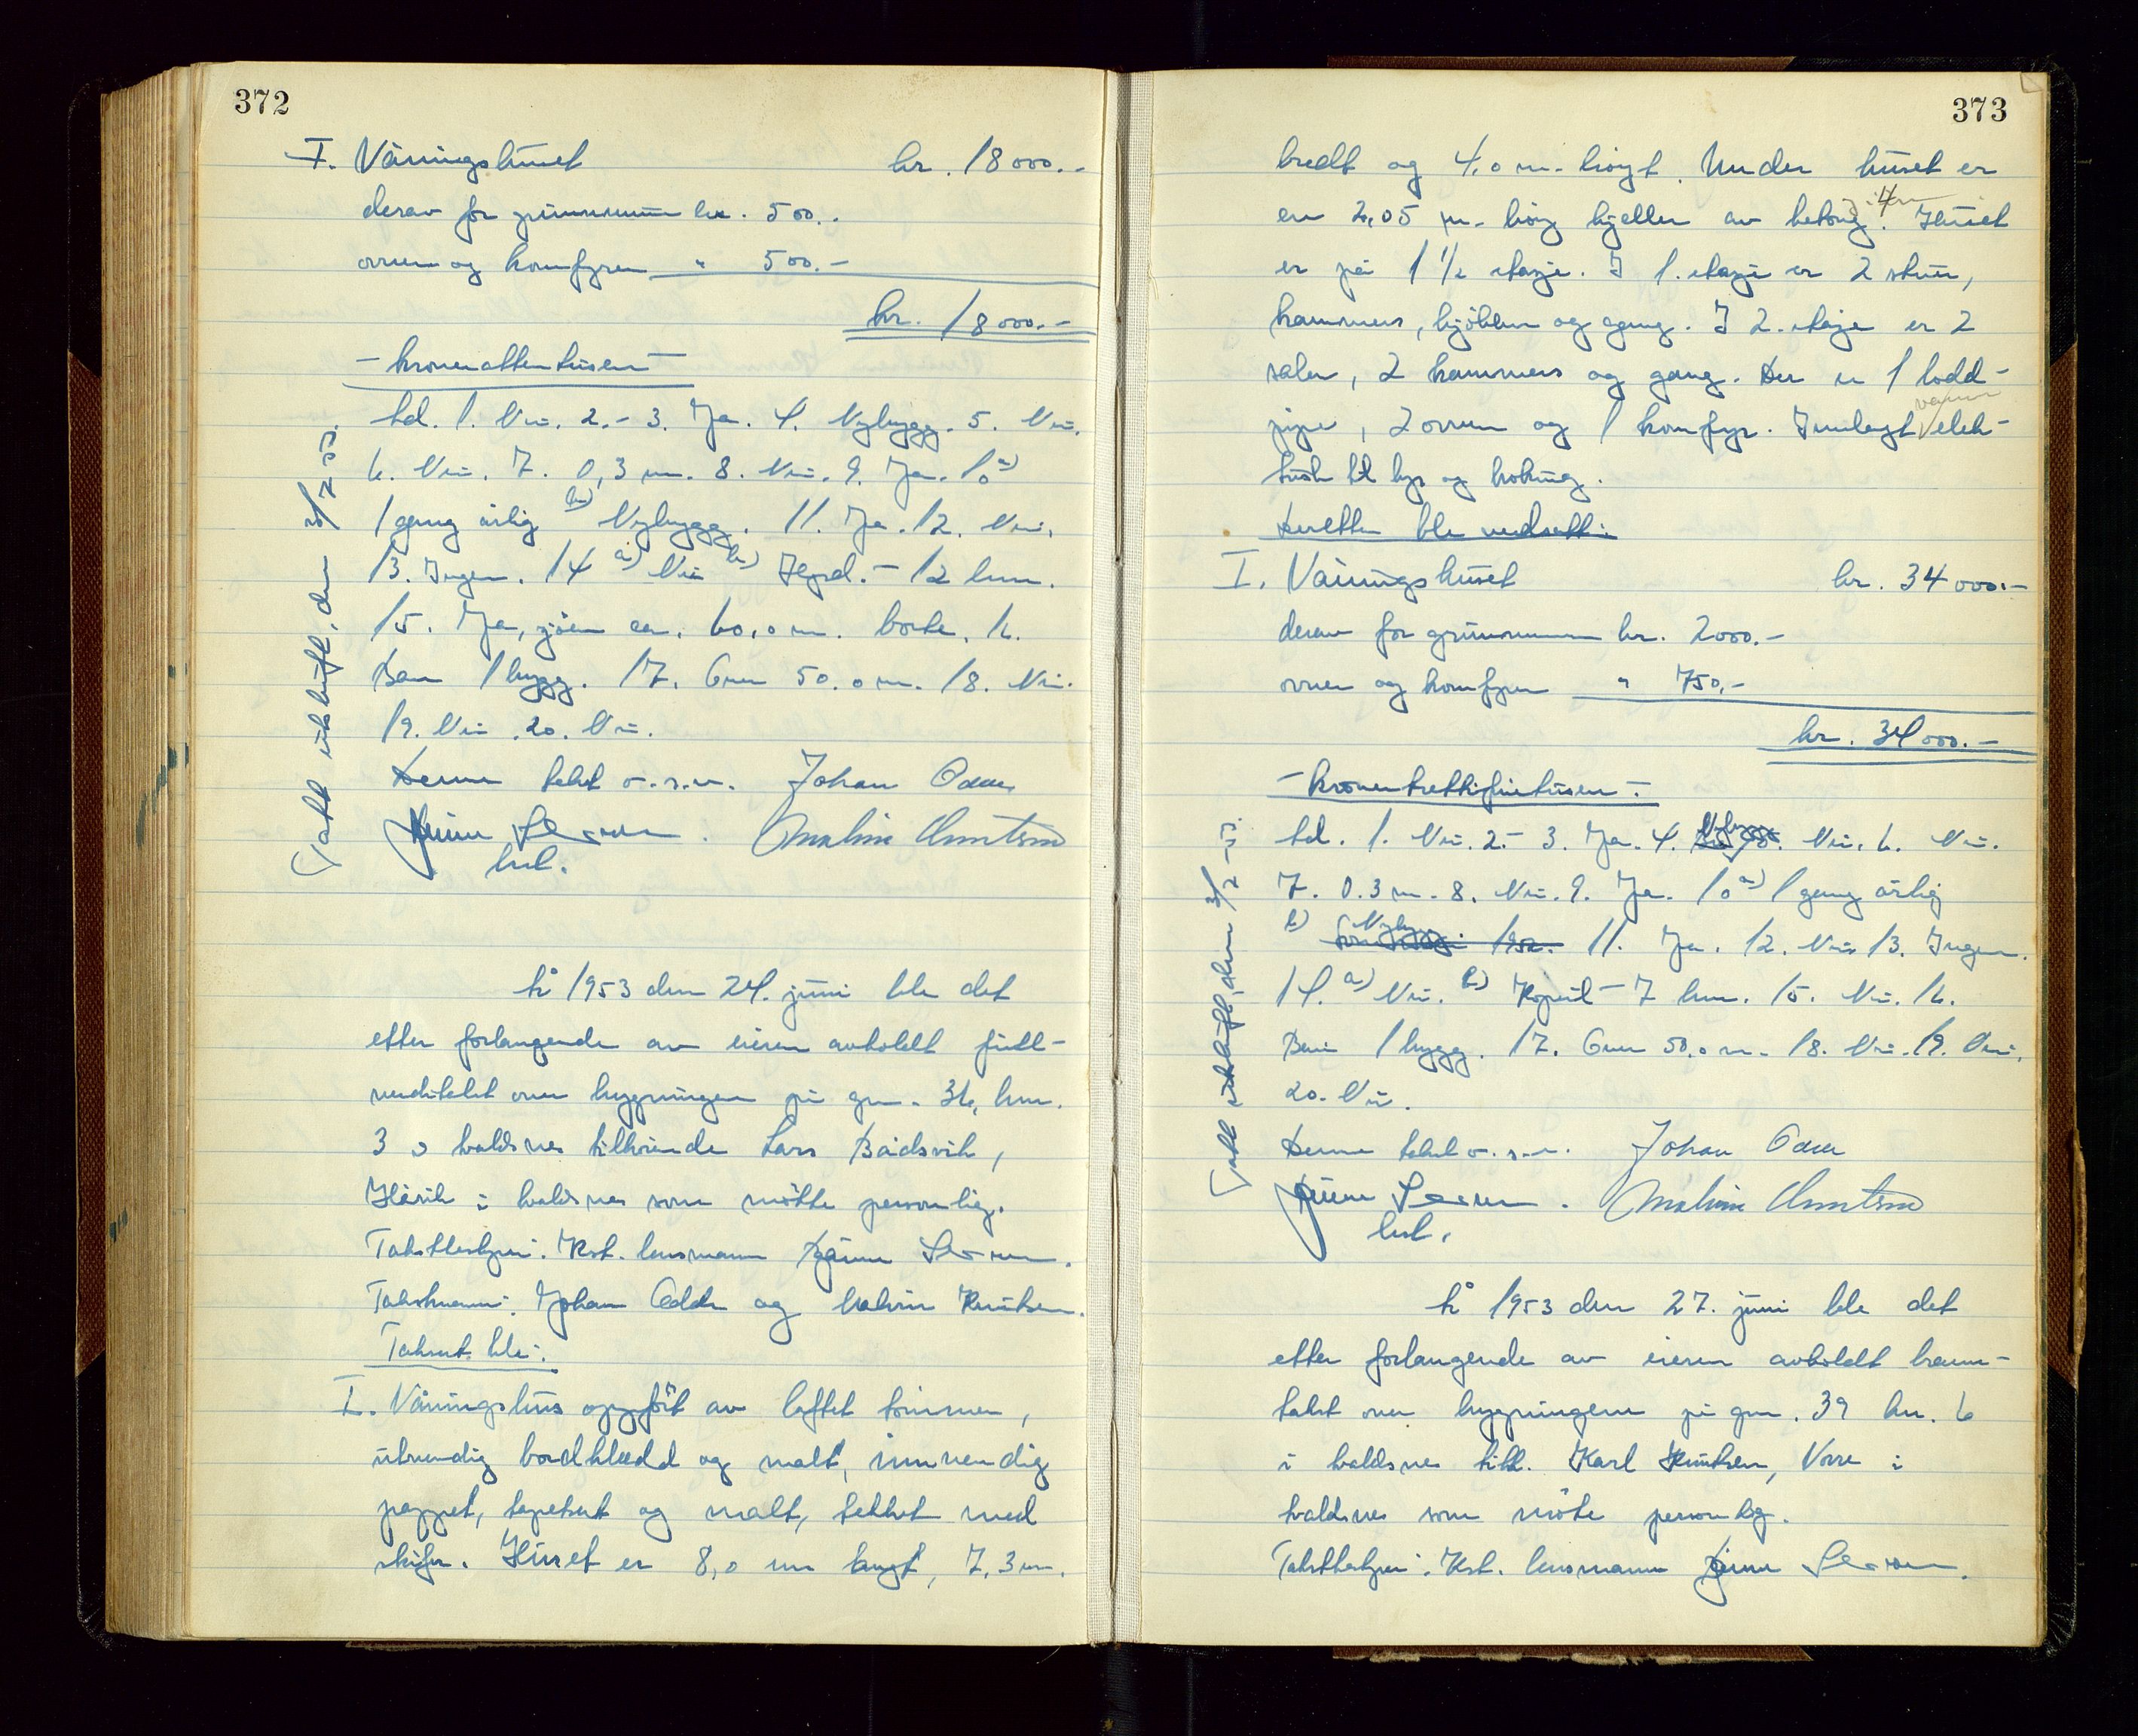 372
I. Våningshuset kr. 18000.-
derav for grunnmuren kr. 500.-
ovnen og komfyren " 500.-
kr. 18000.-
- kronerattentusen -
Ad. 1. Nei. 2.- 3. Ja. 4. Nybygg. 5. Nei.
6. Nei. 7. 0,3 m. 8. Nei. 9. Ja. 10 a)
1 gang årlig b) Nybygg. 11. Ja. 12. Nei.
13. Ingen. 14 a) Nei b) - 12 km.
15. Ja, sjøen ca. 60,0 m. borte. 16.
Bare 1 bygg. 17. Over 50.0 m. 18. Nei.
19. Nei. 20. Nei.
Denne takst o.s.v. Johan Odde
Malvin Knutsen
lm.
Takst utskrift, den
År 1953 den 24. juni ble det
etter forlangende av eieren avholdt full-
verditakst over bygningen på gnr. 36, bnr.
3 i Avaldsnes tilhørende Lars Bådsvik,
Håvik i Avaldsnes som møtte personlig.
Takstbestyrer: Kst. lensmann
Takstmenn: Johan Odde og Malvin Knutsen.
Takst ble:
I. Våningshus oppført av laftet tømmer,
utvendig bordkledd og malt, innvendig
pappet, tapetsert og malt, tekket med
skifer. Huset er 8,0 m langt, 7,3 m.
373
bredt og 4,0 m. høyt. Under huset er
en 2,05 m. høy kjeller av betong. Huset
er på 1 1/2 etasje. I 1. etasje er 2 stuer,
kammers, kjøkken og gang. I 2. etasje er 2
saler, 2 kammers og gang. Der er 1 lodd-
pipe, 2 ovner og 1 komfyr. Innlagt vann elek-
trisk til lys og koking.
Deretter ble verdsatt:
I. Våningshuset kr. 34000.-
derav for grunnmuren kr. 2000.-
ovner og komfyren " 750,-
kr. 34000.-
- kronertrettifiretusen -
Ad. 1. Nei. 2.- 3. Ja. 4. Nybygg. Nei. 6. Nei.
7. 0.3 m. 8. Nei. 9. Ja. 10 a) 1 gang årlig
b) Nybygg 1952. 11. Ja. 12. Nei 13. Ingen.
14. a) Nei. b) Koperv. - 7 km. 15. Nei. 16.
Bare 1 bygg. 17. Over 50,0 m. 18. Nei. 19. Nei.
20. Nei.
Denne takst o.s.v. Johan Odde
Malvin Knutsen
lm.
Takst utskrift, den
År 1953 den 27. juni ble det
etter forlangende av eieren avholdt brann-
takst over bygningene på gnr. 39 bnr. 6
i Avaldsnes tilh. Karl Knutsen, Vorre i
Avaldsnes som møtte personlig.
Takstbestyrer: Kst. lensmann